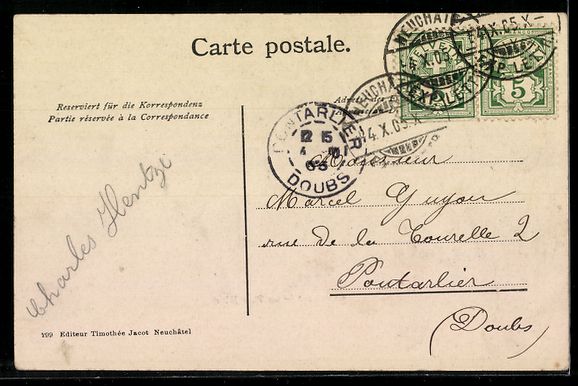 Carte postale.
Reserviert für die Korrespondenz
Partie réservée à la Correspondance
HELVETIA
5
NEUCHATEL
4.X.05.X–
EXP. LETT.
PONTARLIER
DOUBS
Monsieur
Marcel Guyon
rue de la Tourelle 2
Pontarlier
(Doubs)
Charles Hentzi
199 Editeur Timothée Jacot Neuchâtel